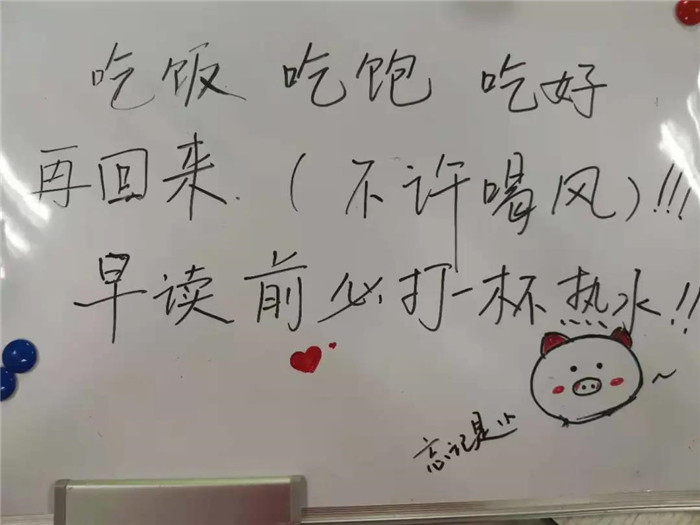 吃饭 吃饱 吃好
再回来.(不许喝风)!!!
早读前必打一杯热水!!
忘记是